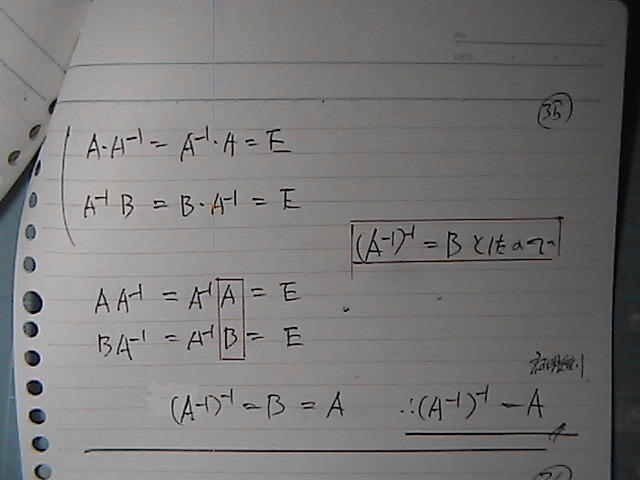 No.
DATE
㉟
A・A⁻¹ = A⁻¹・A = E
A⁻¹ B = B・A⁻¹ = E
(A⁻¹)⁻¹ = B としたので
A A⁻¹ = A⁻¹ A = E
B A⁻¹ = A⁻¹ B = E
(A⁻¹)⁻¹ = B = A ∴(A⁻¹)⁻¹ = A